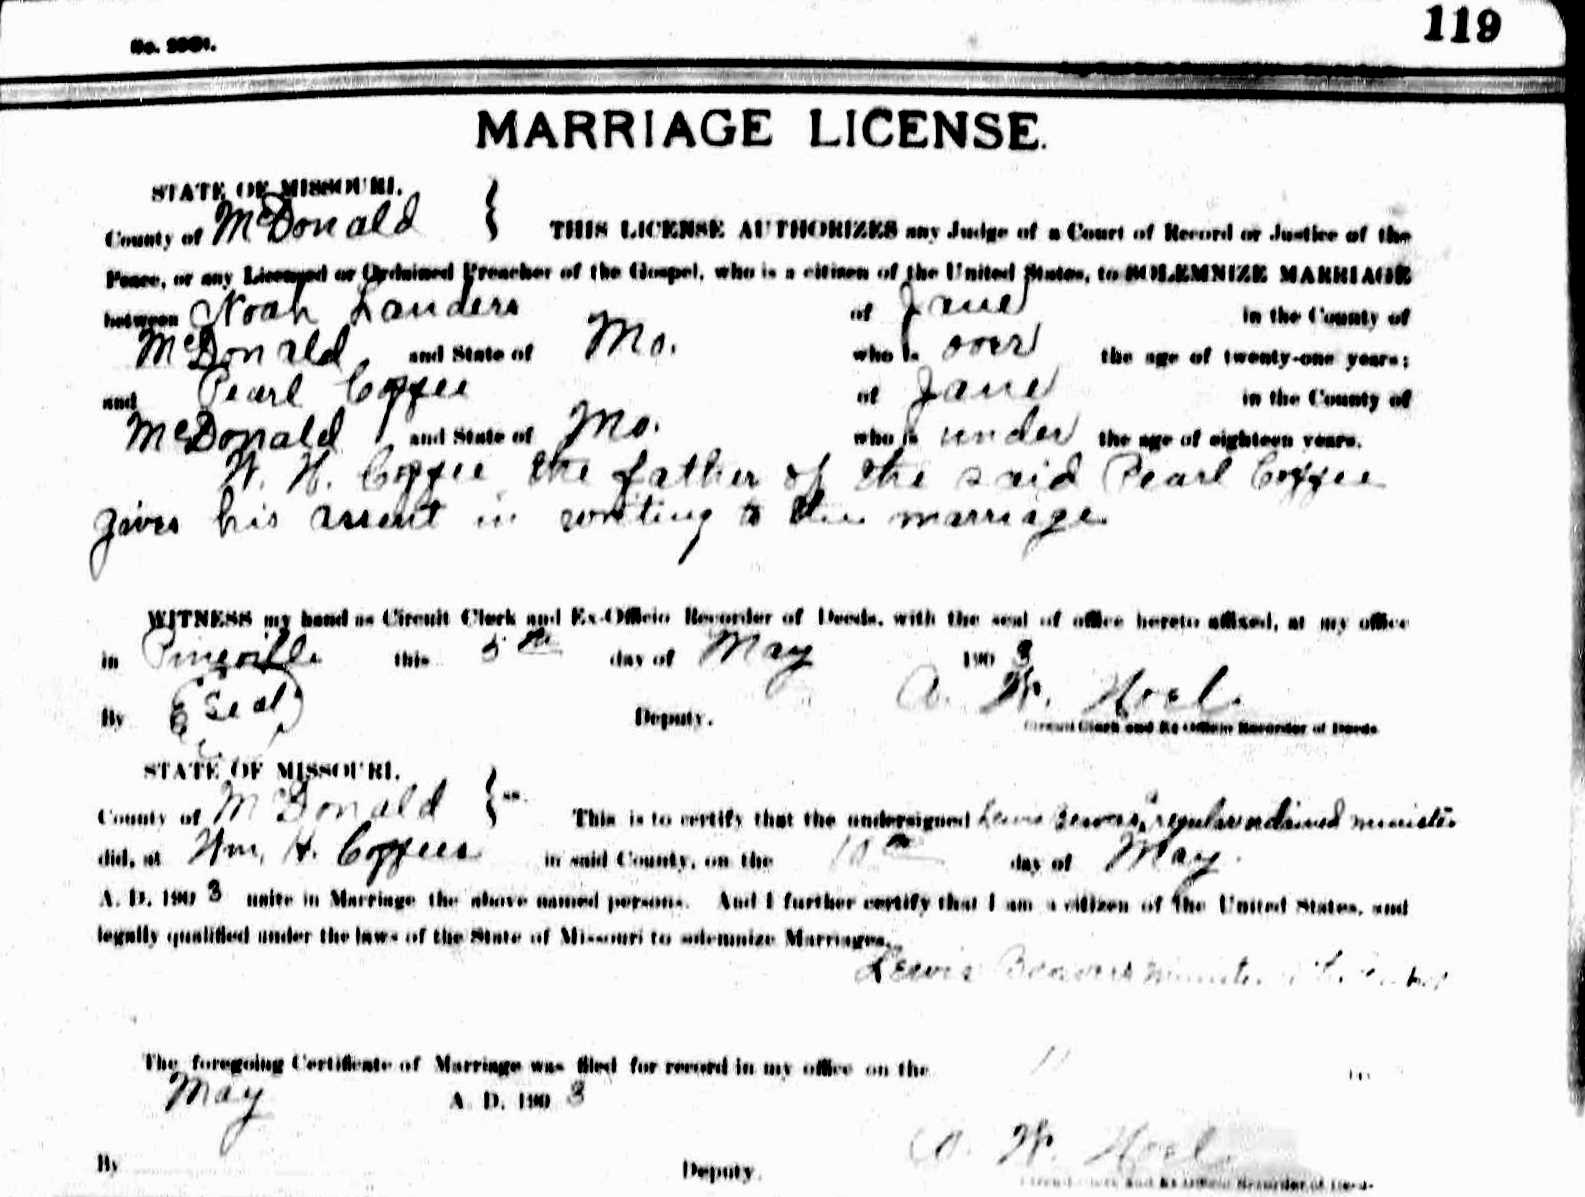 119
MARRIAGE LICENSE.
STATE OF MISSOURI,
County of McDonald } THIS LICENSE AUTHORIZES any Judge of a Court of Record or Justice of the
Peace, or any Licensed or Ordained Preacher of the Gospel, who is a citizen of the United States, to SOLEMNIZE MARRIAGE
between Noah Landers of Jane in the County of
McDonald and State of Mo. who is over the age of twenty-one years;
and Pearl Coffee of Jane in the County of
McDonald and State of Mo. who is under the age of eighteen years.
W. H. Coffee the father of the said Pearl Coffee
gives his assent in writing to the marriage.
WITNESS my hand as Circuit Clerk and Ex-Officio Recorder of Deeds, with the seal of office hereto affixed, at my office
in Pineville this 5th day of May 1903
By (Seal) Deputy. A. W. Noel.
Circuit Clerk and Ex-Officio Recorder of Deeds
STATE OF MISSOURI,
County of McDonald } ss. This is to certify that the undersigned Lewis Beavers, a regular ordained minister
did, at Wm. H. Coffees in said County, on the 10th day of May.
A. D. 1903 unite in Marriage the above named persons. And I further certify that I am a citizen of the United States, and
legally qualified under the laws of the State of Missouri to solemnize Marriages.
Lewis Beavers Minister
The foregoing Certificate of Marriage was filed for record in my office on the 11
May A. D. 1903
By Deputy. A. W. Noel.
Circuit Clerk and Ex Officio Recorder of Deeds